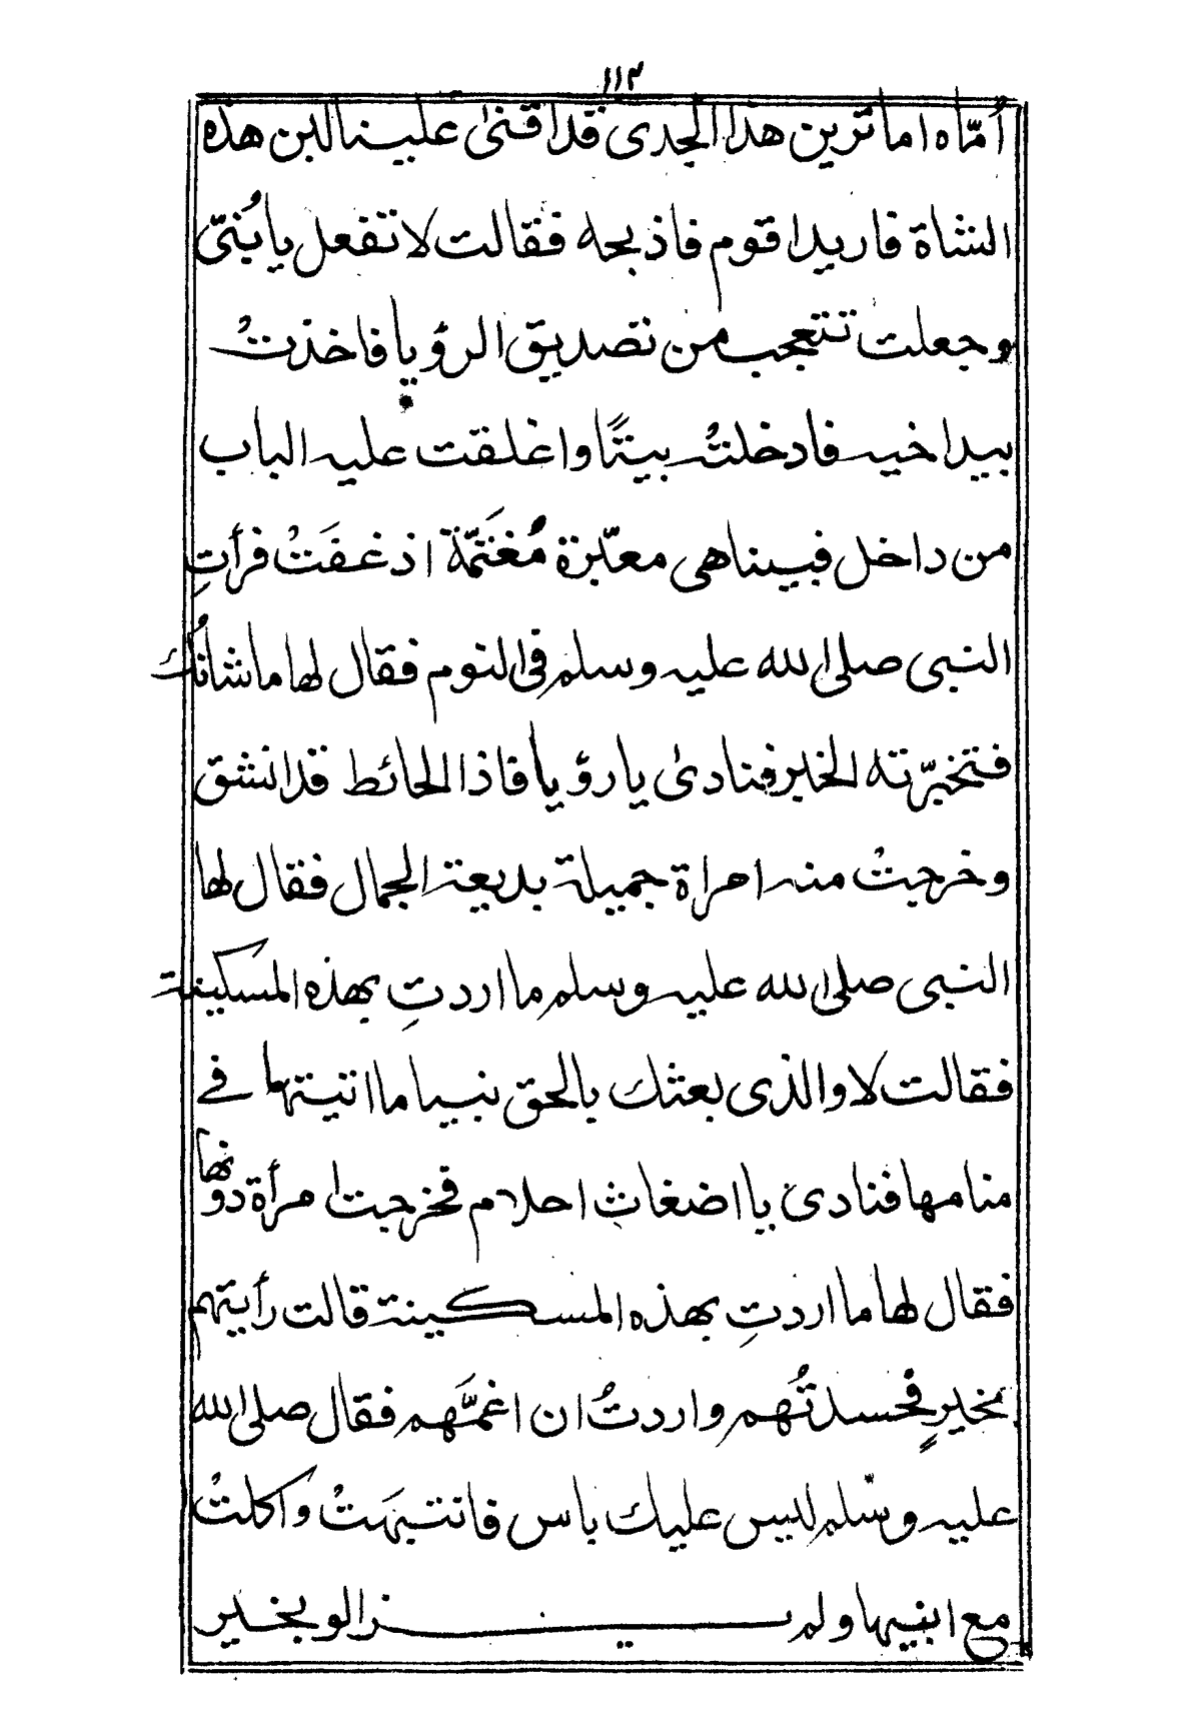 ١١٢
أُمّاه اما ترين هذا الجدى قد افنى علينا لبن هذه
الشاة فاريد اقوم فاذبحه فقالت لا تفعل يا بُنىّ
وجعلت تتعجب من تصديق الرؤيا فاخذتْ
بيد اخيه فادخلتْه بيتًا واغلقت عليه الباب
من داخل فبينا هى معبّرة مُغتَمّة اذ غفَتْ فرأتِ
النبى صلى الله عليه وسلم فى النوم فقال لها ما شانُك
فتخبرّته الخبر فنادى يا رؤيا فاذا الحائط قد انشق
وخرجتْ منه امراة جميلة بديعة الجمال فقال لها
النبى صلى الله عليه وسلم ما اردتِ بهذه المسكينة
فقالت لا والذى بعثك بالحق نبيا ما اتيتها فے
منامها فنادى يا اضغاث احلام فخرجت امرأة دونها
فقال لها ما اردتِ بهذه المسكينة قالت رأيتهم
بخيرٍ فحسدتُهم واردتُ ان اغمَّهم فقال صلى الله
عليه وسلم ليس عليك باس فانتبهَتْ واكلتْ
مع ابنيها ولم يزالو بخير